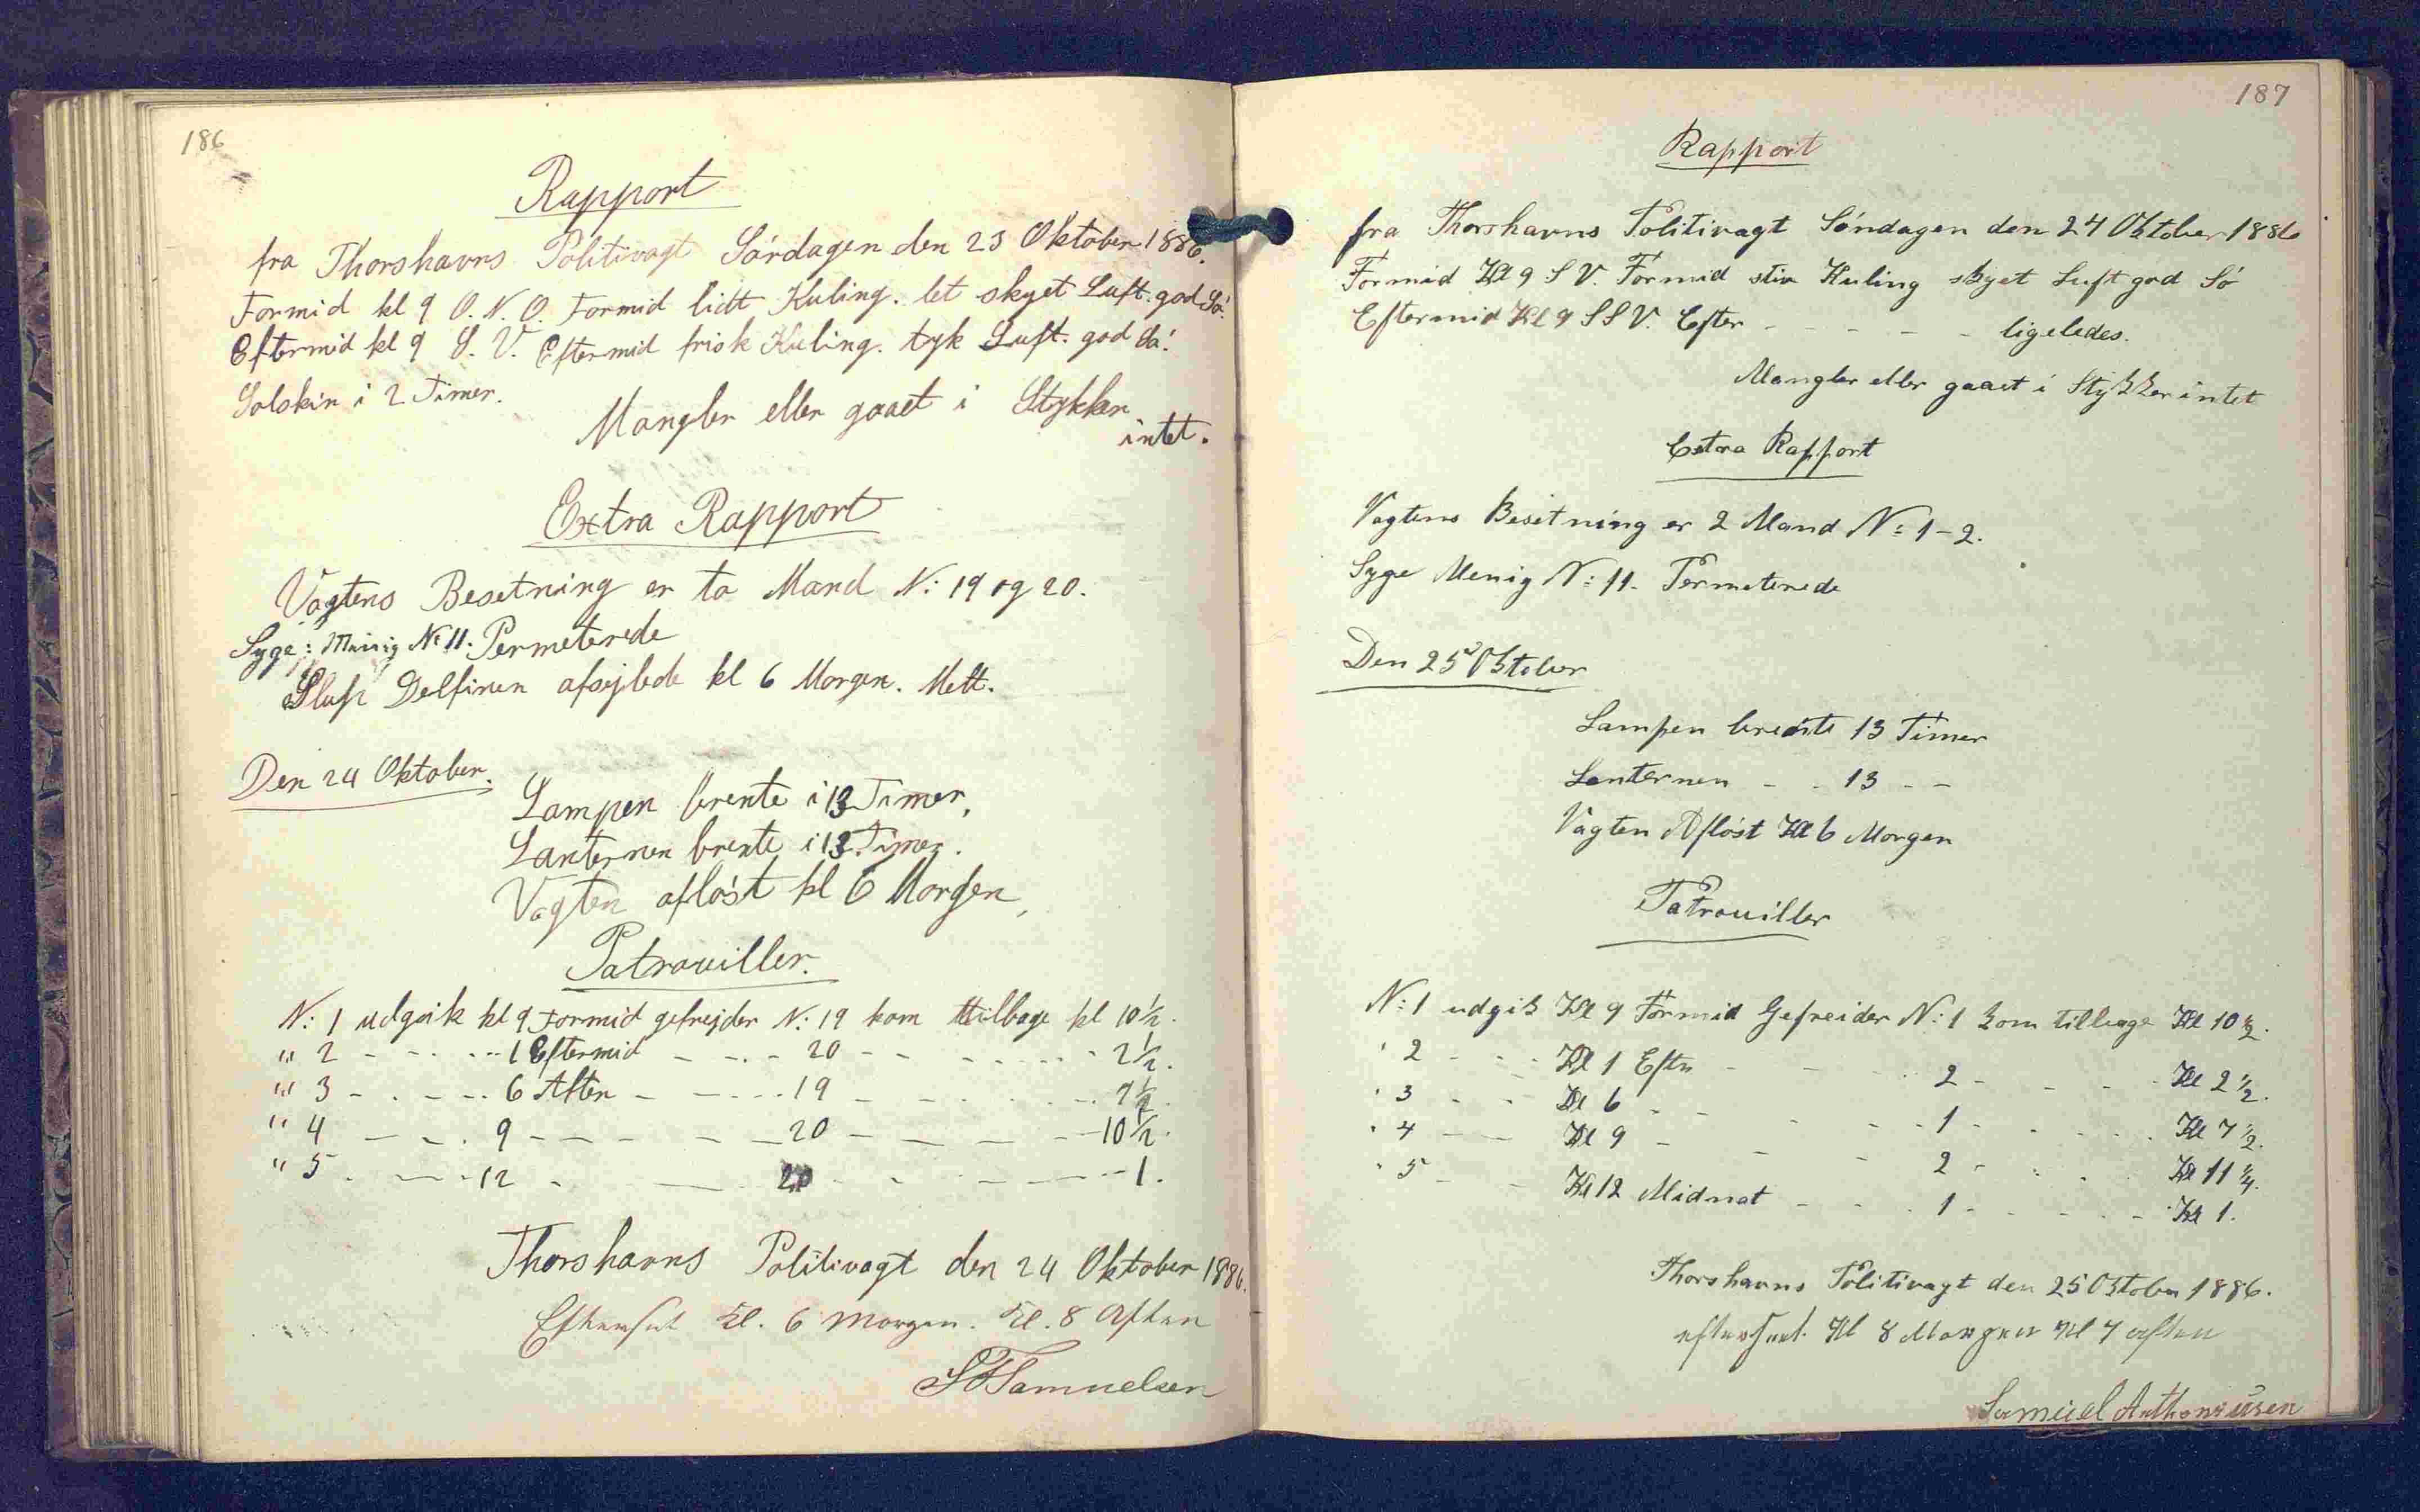 186
Rapport
fra Thorshavns Politivagt Lördagen den 23 Oktober 1886.
Formid kl 9 O. N. O. Formid lidt Kuling. let skyet Luft. god Sö.
Eftermid kl 9 S. V. Eftermid frisk Kuling. tyk Luft. god Sö.
Solskin i 2 Timer.
Mangler eller gaaet i Stykker
intet.
Extra Rapport
Vagtens Besetning er to Mand N: 19 og 20.
Syge: Menig N: 11. Permeterede
Slup Delfinen afsejlede kl 6 Morgen. Mett.
Den 24 Oktober.
Lampen brente i 13 Timer.
Lanternen brente i 13 Timer.
Vagten aflöst kl 6 Morgen,
Patrouiller.
N: 1 udgik kl 9 Formid gefrejder N: 19 kom tilbage kl 10 1/2.
" 2 - - - - 1 Eftermid - - - - 20 - - - - - - 2 1/2.
" 3 - - - - 6 Aften - - - - 19 - - - - - - 7 1/2.
" 4 - - - 9 - - - - - 20 - - - - - 10 1/2.
" 5 - - - 12 - - - 20 - - - - - 1.
Thorshavns Politivagt den 24 Oktober 1886.
Efterset Kl. 6 Morgen. Kl. 8 Aften
Samuelsen
187
Rapport
fra Thorshavns Politivagt Söndagen den 24 Oktober 1886
Formid Kl 9 S V. Formid stiv Kuling skyet Luft god Sö
Eftermid Kl 9 S S V. Efter - - - - - ligeledes.
Mangler eller gaaet i Stykker intet
Extra Rapport
Vagtens Besetning er 2 Mand N: 1-2.
Syge Menig N: 11. Permeterede
Den 25 Oktober
Lampen brente 13 Timer
Lanternen - - 13 - -
Vagten Aflöst Kl 6 Morgen
Patrouiller
N: 1 udgik Kl 9 Formid Gefreider N: 1 kom tilbage Kl 10 1/2.
" 2 - - - Kl 1 Eftr - - - 2 - - - - Kl 2 1/2.
" 3 - - Kl 6 - - - - 1 - - - - Kl 7 1/2.
" 4 - - Kl 9 - - - 2 - - - Kl 11 1/4.
" 5 - - Kl 12 Midnat - - - 1 - - - - - Kl 1.
Thorshavns Politivagt den 25 Oktober 1886.
efterset. Kl 8 Morgen Kl 7 aften
Samuel Anthoniusen